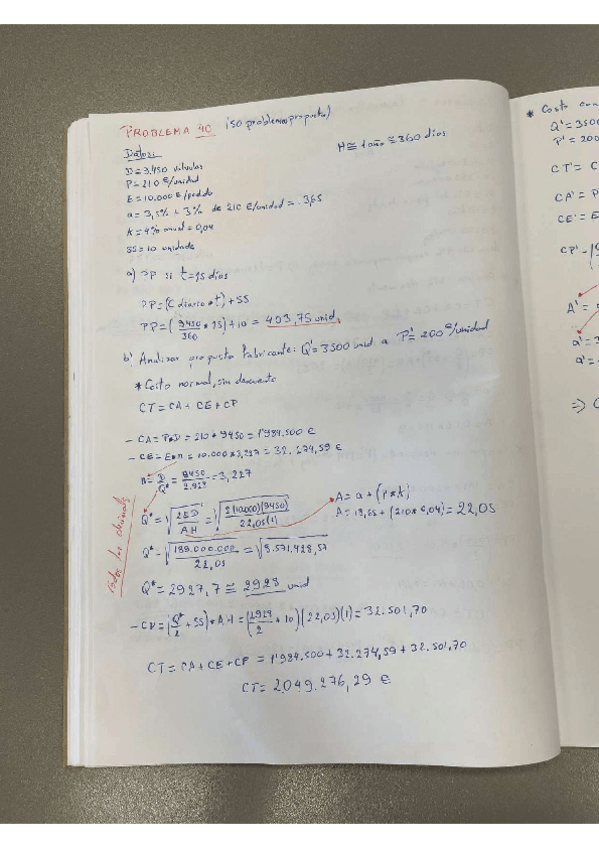 PROBLEMA 40 (50 problemas propuestos)
H ≅ 1 año ≅ 360 días
Datos:
D = 9.450 válvulas
P = 210 €/unidad
E = 10.000 €/pedido
a = 3,5% + 3% de 210 €/unidad = 13,65
K = 4% anual = 0,04
SS = 10 unidade
a) ?PP si t = 15 días
PP = (C diario * t) + SS
PP = (9450/360 * 15) + 10 = 403,75 unid.
b) Analizar propuesta fabricante: Q' = 3500 unid a P' = 200 €/unidad
* Costo normal, sin descuento
CT = CA + CE + CP
- CA = P*D = 210 * 9450 = 1'984.500 €
- CE = E*n = 10.000 * 3,227 = 32.274,59 €
n = D/Q* = 9450/2.928 = 3,227
todos los decimales
Q* = √(2ED/AH) = √(2(10.000)(9450)/22,05(1))
A = a + (P*K)
A = 13,65 + (210*0,04) = 22,05
Q* = √(189.000.000/22,05) = √8.571.428,57
Q* = 2927,7 ≅ 2928 unid
- CP = (Q*/2 + SS) * AH = (2928/2 + 10)(22,05)(1) = 32.501,70
CT = CA + CE + CP = 1'984.500 + 32.274,59 + 32.501,70
CT = 2.049.276,29 €
* Costo con
Q' = 3500
P' = 200
CT' = C
CA' = P
CE' = E
CP' =
A' =
a' = 3
a' =
=> C